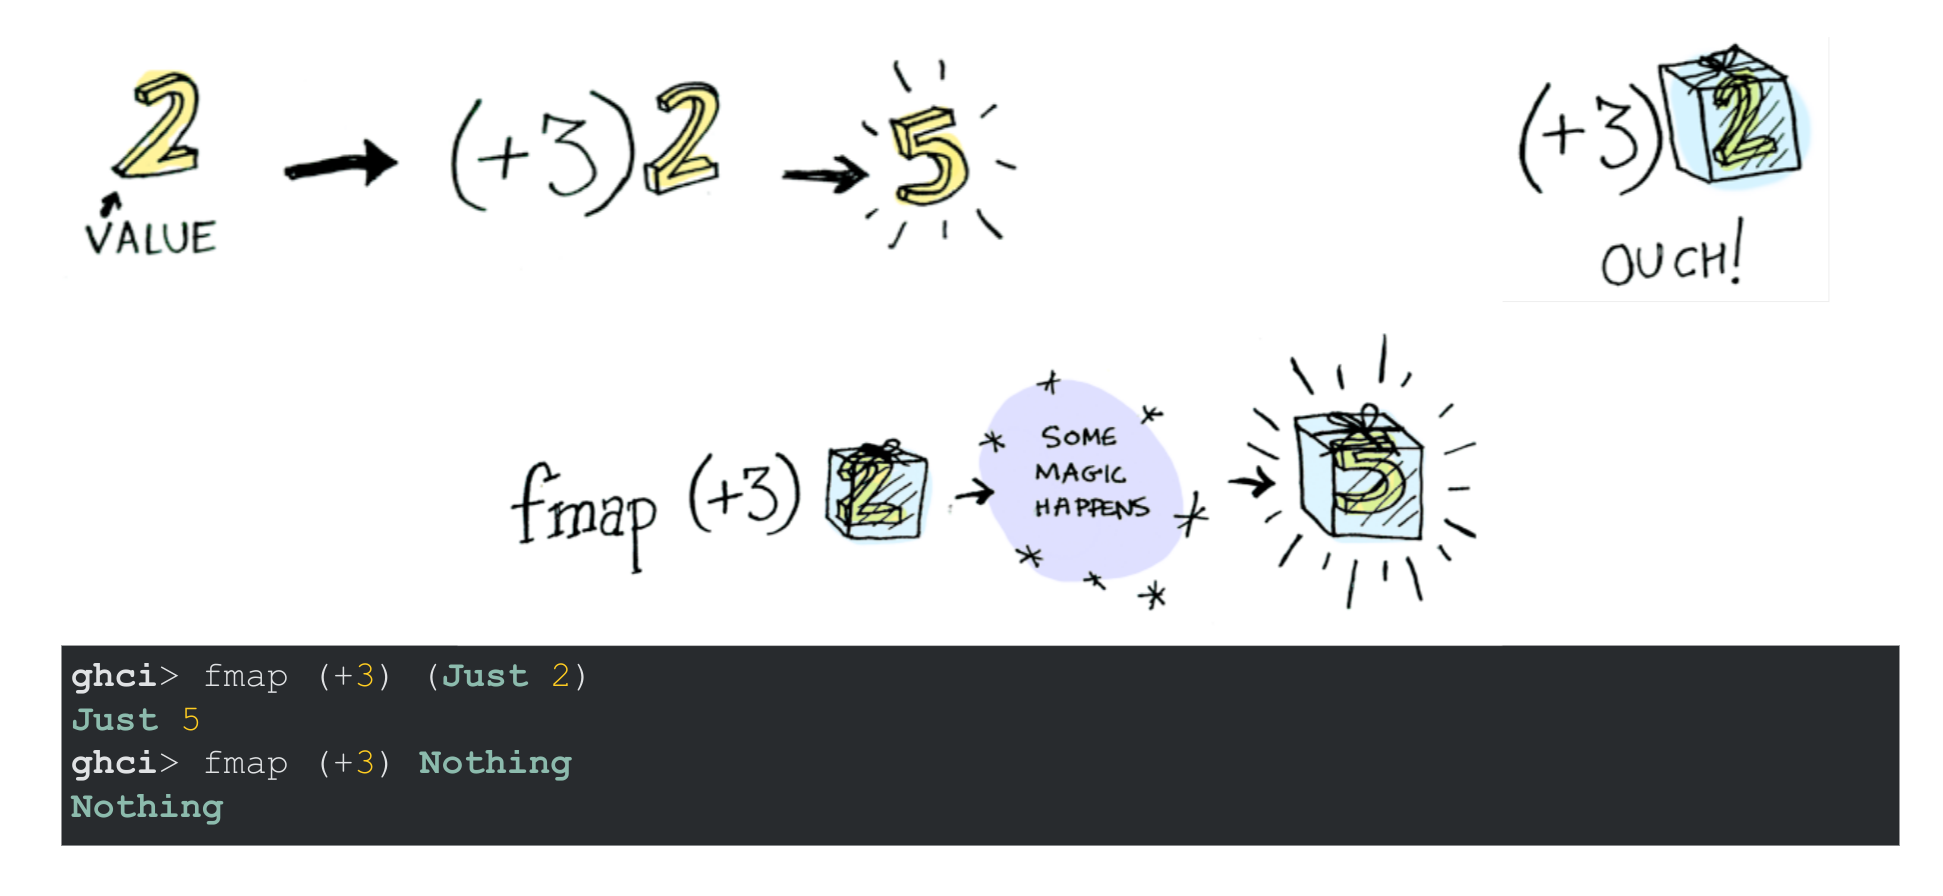 2 → (+3)2 → 5
VALUE
(+3)2
OUCH!
fmap (+3) 2 → SOME MAGIC HAPPENS → 5
ghci> fmap (+3) (Just 2)
Just 5
ghci> fmap (+3) Nothing
Nothing